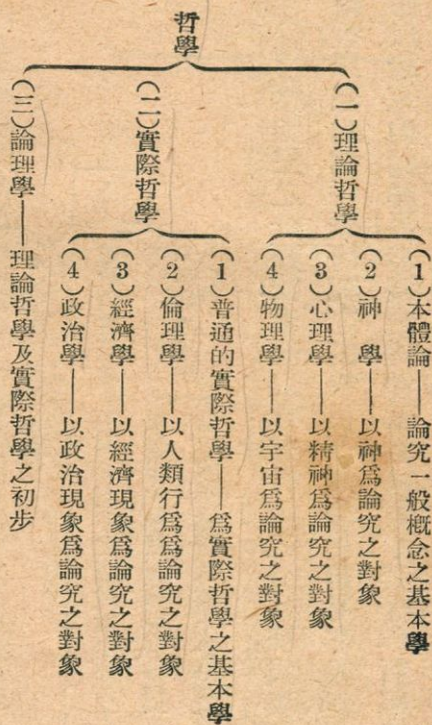 哲學
（一）理論哲學
（1）本體論——論究一般概念之基本學
（2）神　學——以神爲論究之對象
（3）心理學——以精神爲論究之對象
（4）物理學——以宇宙爲論究之對象
（二）實際哲學
（1）普通的實際哲學——爲實際哲學之基本學
（2）倫理學——以人類行爲爲論究之對象
（3）經濟學——以經濟現象爲論究之對象
（4）政治學——以政治現象爲論究之對象
（三）論理學——理論哲學及實際哲學之初步